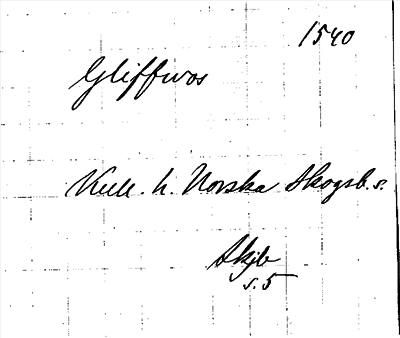 1540
Gliffwos
Vull. h. Norska Skogsb. s.
Skjb
s. 5